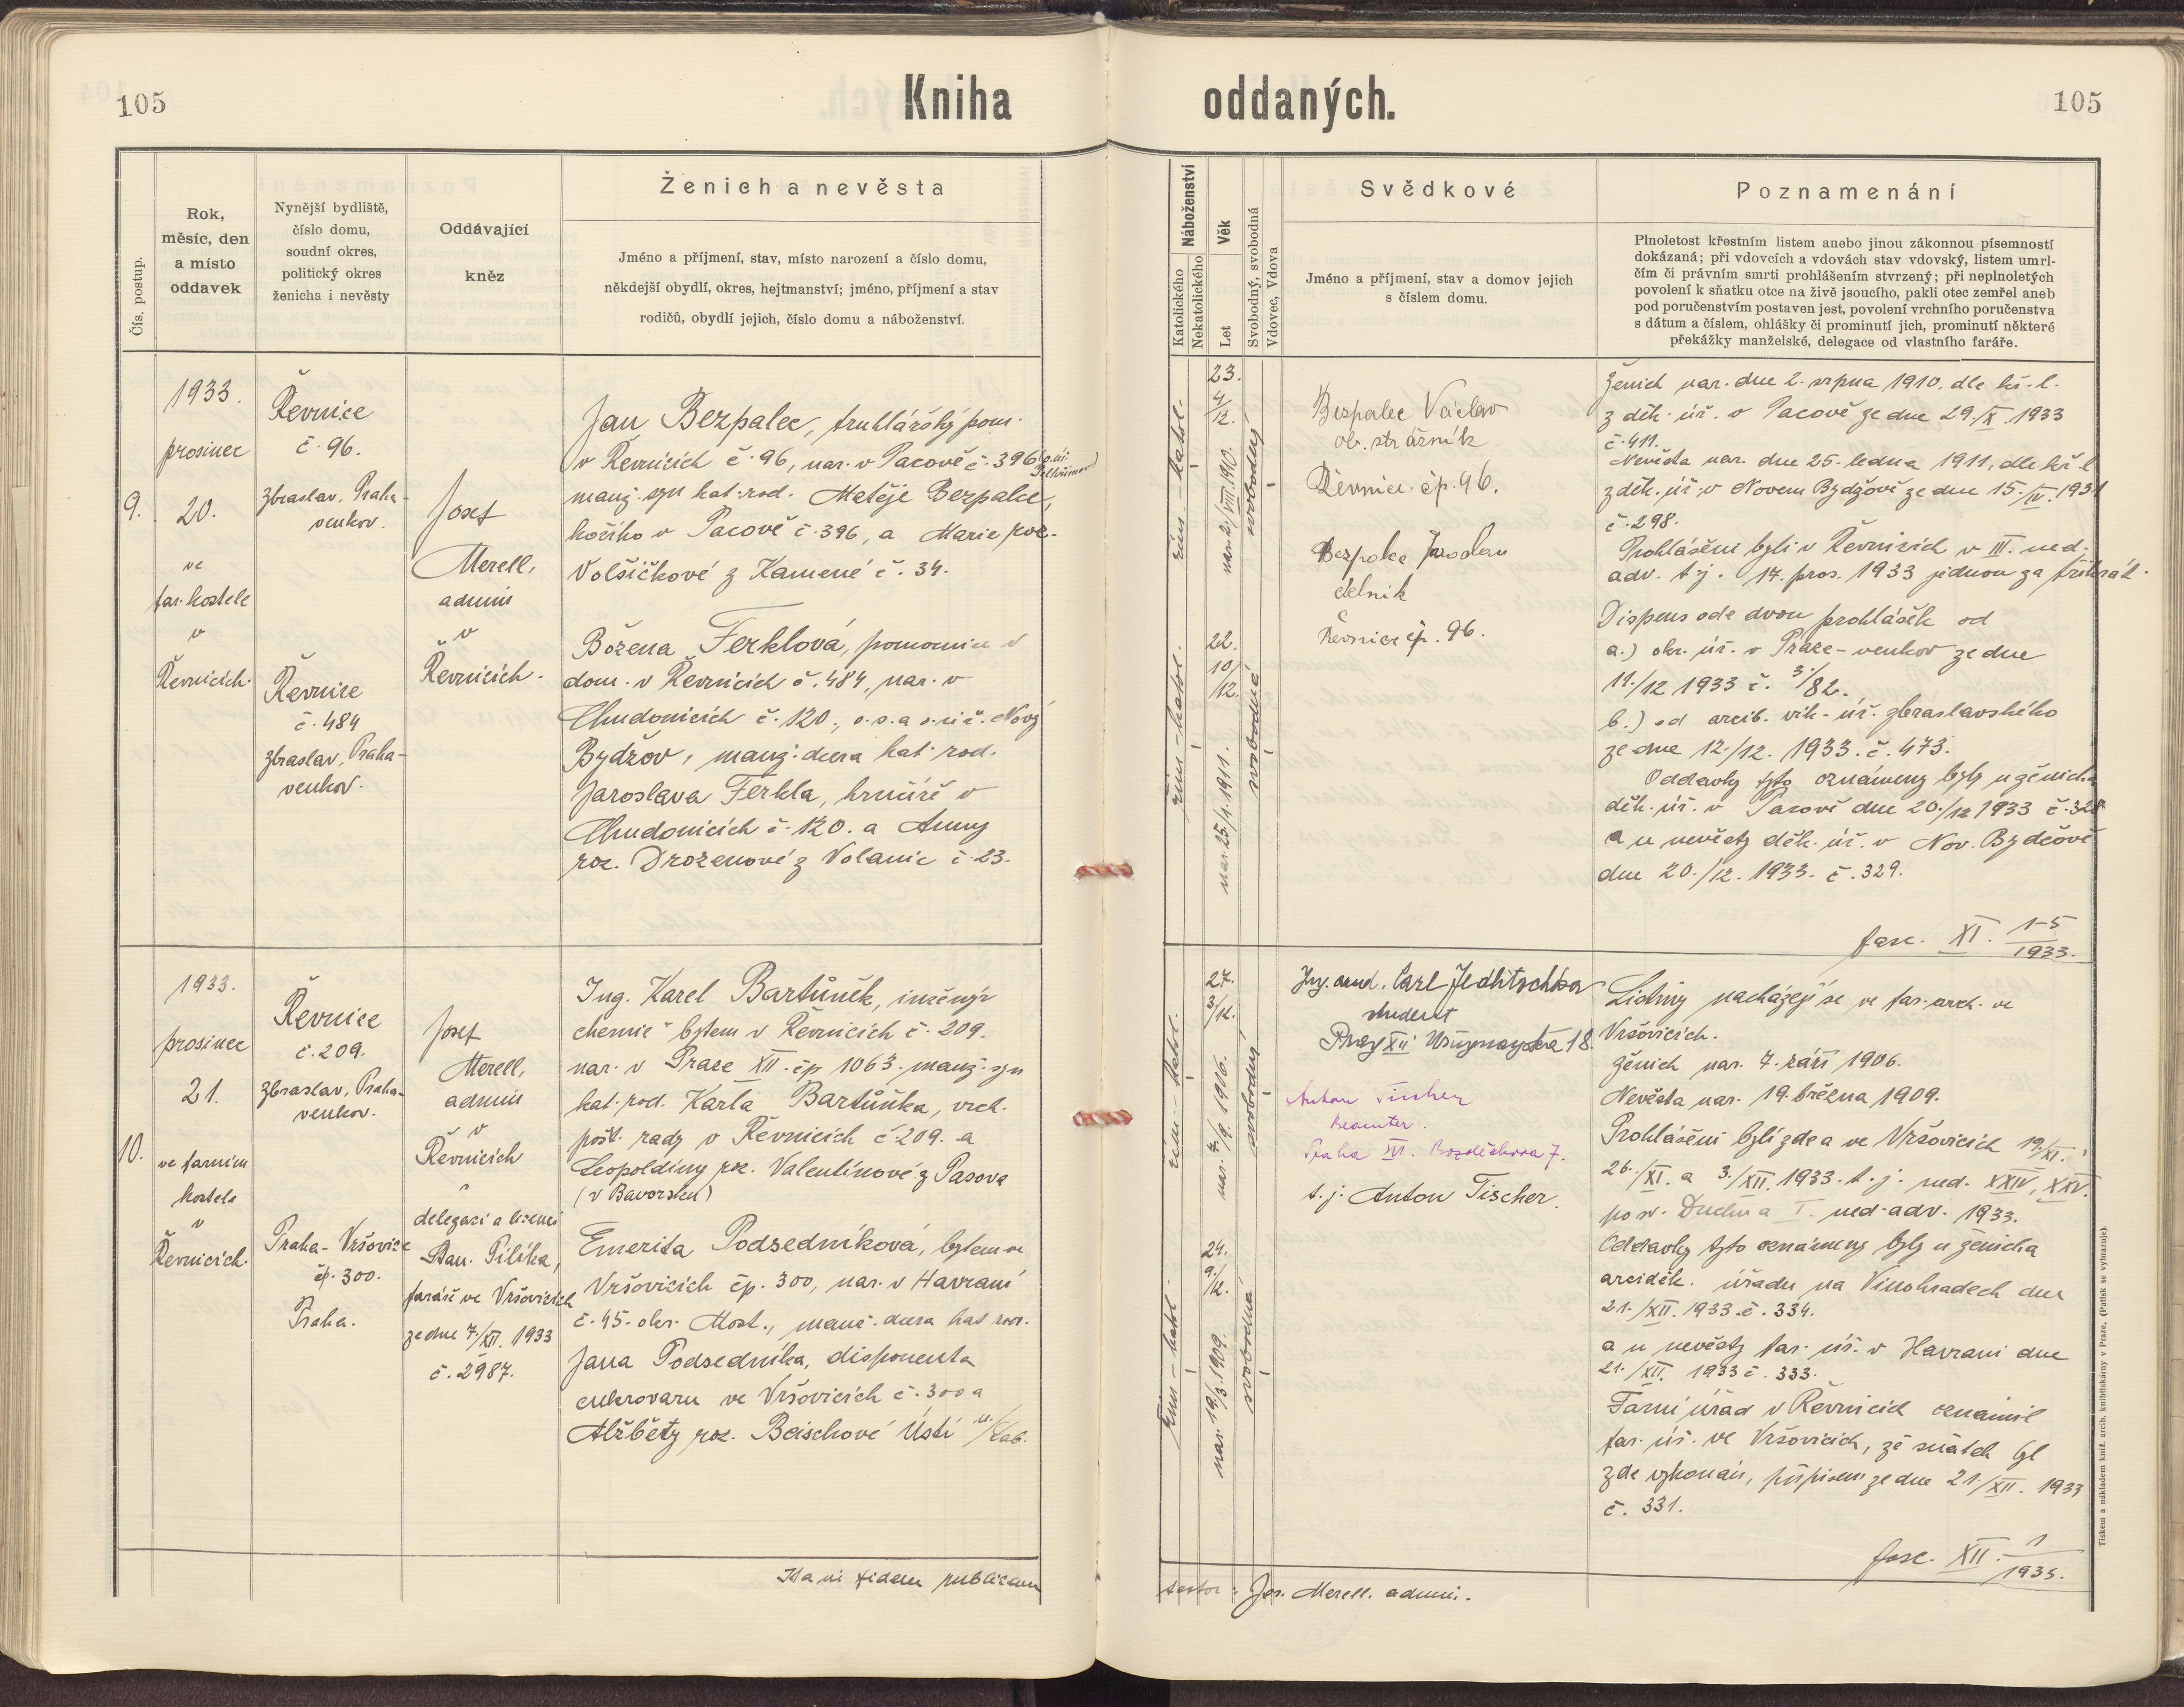 105
Kniha
oddaných.
105
Čís. postup.
Rok,
měsíc, den
a místo
oddavek
Nynější bydliště,
číslo domu,
soudní okres,
politický okres
ženicha i nevěsty
Oddávající
kněz
Ženich a nevěsta
Jméno a příjmení, stav, místo narození a číslo domu,
někdejší obydlí, okres, hejtmanství; jméno, příjmení a stav
rodičů, obydlí jejich, číslo domu a náboženství.
Náboženství
Katolického
Nekatolického
Věk
Let
Svobodný, svobodná
Vdovec, Vdova
Svědkové
Jméno a příjmení, stav a domov jejich
s číslem domu.
Poznamenání
Plnoletost křestním listem anebo jinou zákonnou písemností
dokázaná; při vdovcích a vdovách stav vdovský, listem umrl-
čím či právním smrti prohlášením stvrzený; při neplnoletých
povolení k sňatku otce na živě jsoucího, pakli otec zemřel aneb
pod poručenstvím postaven jest, povolení vrchního poručenstva
s dátum a číslem, ohlášky či prominutí jich, prominutí některé
překážky manželské, delegace od vlastního faráře.
9.
1933.
prosinec
20.
ve
far. kostele
v
Řevnicích.
Řevnice
č. 96.
Zbraslav, Praha-
venkov.
Řevnice
č. 484
Zbraslav, Praha-
venkov.
Josef
Merell,
admin
v
Řevnicích.
Jan Bezpalec, truhlářský pom.
v Řevnicích č. 96, nar. v Pacově č. 396
manž. syn kat. rod. Matěje Bezpalce,
v Pacově č. 396, a Marie roz.
Volšičkové z Kamené č. 34.
Božena Ferklová, pomocnice v
dom. v Řevnicích č. 484, nar. v
Chudonicích č. 120., o. s. a Nový
Bydžov, manž. dcera kat. rod.
Jaroslava Ferkla, hrnčíř v
Chudonicích č. 120. a Anny
roz. Droženové z Volanic č. 23.
řím.-katol.
23.
4/12.
nar. 2./VIII. 1910.
svobodný
řím.-katol.
22.
10/12.
nar. 25./1. 1911.
svobodná
Bezpalec Václav
ob. strážník
Řevnice čp. 96.
Bezpalec
dělník
Řevnice čp. 96.
Ženich nar. dne 2. srpna 1910. dle kř. l.
z děk. úř. v Pacově ze dne 29./X. 1933
č. 411.
Nevěsta nar. dne 25. ledna 1911, dle kř. l.
z děk. úř. v Novém Bydžově ze dne 15./IV. 1931
č. 298.
Prohlášeni byli v Řevnicích v III. ned.
adv. t. j. 17. pros. 1933 jednou za třikrát.
Dispens ode dvou prohlášek od
a.) okr. úř. v Praze-venkov ze dne
11./12 1933 č. 3/82.
b.) od arcib. vik. úř. zbraslavského
ze dne 12./12. 1933. č. 473.
Oddavky tyto oznámeny byly u ženicha
děk. úř. v Pacově dne 20./12 1933 č. 328
a u nevěsty děk. úř. v Nov. Bydžově
dne 20./12. 1933. č. 329.
fasc. XI. 1-5/1933.
10.
1933.
prosinec
21.
ve farním
kostele
v
Řevnicích.
Řevnice
č. 209.
Zbraslav, Praha-
venkov.
Praha-Vršovice
čp. 300.
Praha.
Josef
Merell,
admin
v
Řevnicích
delegací a licencí
faráře ve Vršovicích
ze dne 7./XII. 1933
č. 2987.
Ing. Karel Bartůněk, inženýr
chemie bytem v Řevnicích č. 209.
nar. v Praze XII. čp 1063. manž. syn
kat. rod. Karla Bartůňka, vrch.
pošt. rady v Řevnicích č. 209. a
Leopoldiny roz. Valentinové z Pasova
(v Bavorsku)
Emerita Podsedníková, bytem ve
Vršovicích čp. 300, nar. v Havrani
č. 45. okr. Most., manž. dcera kat. rod.
Jana Podsedníka, disponenta
cukrovaru ve Vršovicích č. 300 a
Alžběty roz. Beischové Ústí n./Lab.
řím.-katol.
27.
3/12.
nar. 7./9. 1906.
svobodný
řím.-katol.
24.
9./12.
nar. 19./3. 1909.
svobodná
Ing. cand. Carl Jedlitschka
student
Prag XII 18.
Anton Tischer
Beamter.
Praha XVI. Bozděchova 7.
t. j. Anton Tischer.
Listiny nacházejí se ve far. arch. ve
Vršovicích.
Ženich nar. 7. září 1906.
Nevěsta nar. 19. března 1909.
Prohlášeni byli zde a ve Vršovicích 19./XI.,
26./XI. a 3./XII. 1933. t. j. ned. XXIV, XXV.
po sv. Duchu a I. ned. adv. 1933.
Oddavky tyto oznámeny byly u ženicha
arciděk. úřadu na Vinohradech dne
21./XII. 1933. č. 334.
a u nevěsty far. úř. v Havrani dne
21./XII. 1933 č. 333.
Farní úřad v Řevnicích oznámil
far. úř. ve Vršovicích, že sňatek byl
zde vykonán, přípisem ze dne 21./XII. 1933
č. 331.
fasc. XII. 1/1933.
fidem publicam
testor: Jos. Merell. admin.
Tiskem a nákladem kníž. arcib. knihtiskárny v Praze. (Patisk se vyhrazuje)